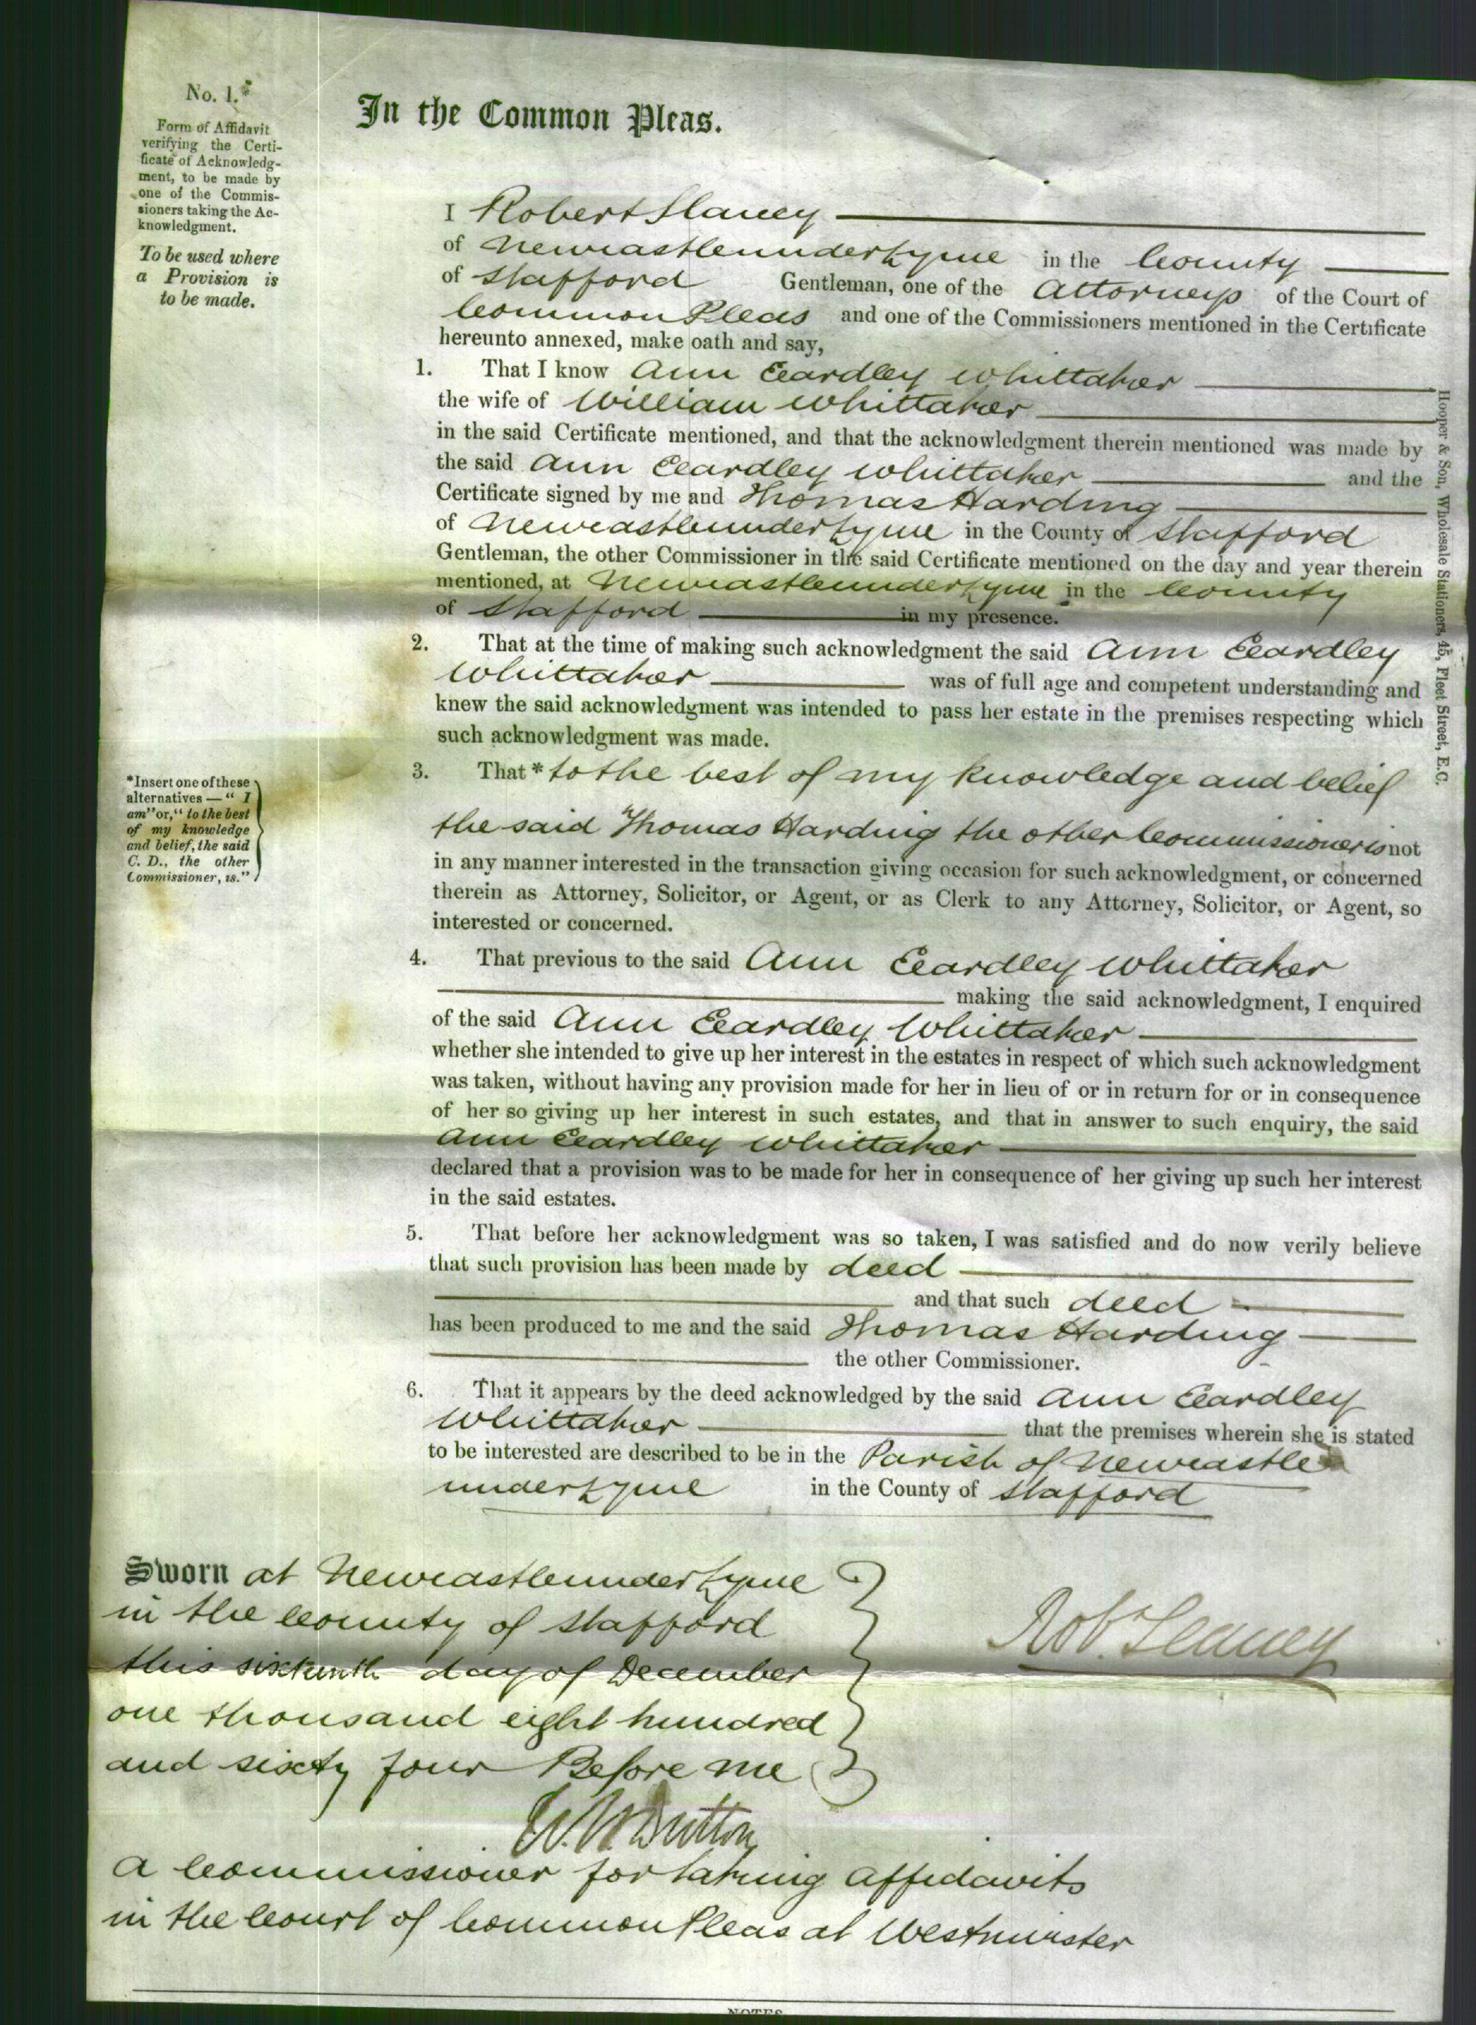 No. 1.*
Form of Affidavit
verifying the Certi-
ficate of Acknowledg-
ment, to be made by
one of the Commis-
sioners taking the Ac-
knowledgment.
To be used where
a Provision is
to be made.
In the Common Pleas.
I Robert Slaney
of Newcastleunderlyme in the County
of Stafford Gentleman, one of the Attorneys of the Court of
Common Pleas and one of the Commissioners mentioned in the Certificate
hereunto annexed, make oath and say,
1. That I know Ann Eardley Whittaker
the wife of William Whittaker
in the said Certificate mentioned, and that the acknowledgment therein mentioned was made by
the said Ann Eardley Whittaker and the
Certificate signed by me and Thomas Harding
of Newcastleunderlyme in the County of Stafford
Gentleman, the other Commissioner in the said Certificate mentioned on the day and year therein
mentioned, at Newcastleunderlyme in the County
of Stafford in my presence.
2. That at the time of making such acknowledgment the said Ann Eardley
Whittaker was of full age and competent understanding and
knew the said acknowledgment was intended to pass her estate in the premises respecting which
such acknowledgment was made.
3. That * to the best of my knowledge and belief
the said Thomas Harding the other Commissioner is not
in any manner interested in the transaction giving occasion for such acknowledgment, or concerned
therein as Attorney, Solicitor, or Agent, or as Clerk to any Attorney, Solicitor, or Agent, so
interested or concerned.
*Insert one of these
alternatives — "I
am" or, "to the best
of my knowledge
and belief, the said
C. D., the other
Commissioner, is."
4. That previous to the said Ann Eardley Whittaker
making the said acknowledgment, I enquired
of the said Ann Eardley Whittaker
whether she intended to give up her interest in the estates in respect of which such acknowledgment
was taken, without having any provision made for her in lieu of or in return for or in consequence
of her so giving up her interest in such estates, and that in answer to such enquiry, the said
Ann Eardley Whittaker
declared that a provision was to be made for her in consequence of her giving up such her interest
in the said estates.
5. That before her acknowledgment was so taken, I was satisfied and do now verily believe
that such provision has been made by deed
and that such deed
has been produced to me and the said Thomas Harding
the other Commissioner.
6. That it appears by the deed acknowledged by the said Ann Eardley
Whittaker that the premises wherein she is stated
to be interested are described to be in the Parish of Newcastle
underlyme in the County of Stafford
Sworn at Newcastleunderlyme
in the County of Stafford
this sixteenth day of December
one thousand eight hundred
and sixty four Before me
Rob. Slaney
W. W. Dutton
A Commissioner for taking affidavits
in the Court of Common Pleas at Westminster
Hooper & Son, Wholesale Stationers, 45, Fleet Street, E.C.
NOTES